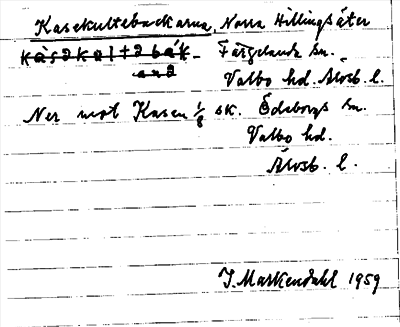 Kasekultebackarna, Norra Hillingsäter
kàsəkəltəbák- Färgelanda sn.
ənə Valbo hd. Älvsb. l.
Ner mot Kasen 1/8 sk. Ödeborgs sn.
Valbo hd.
Älvsb. l.
J. Markendahl 1959